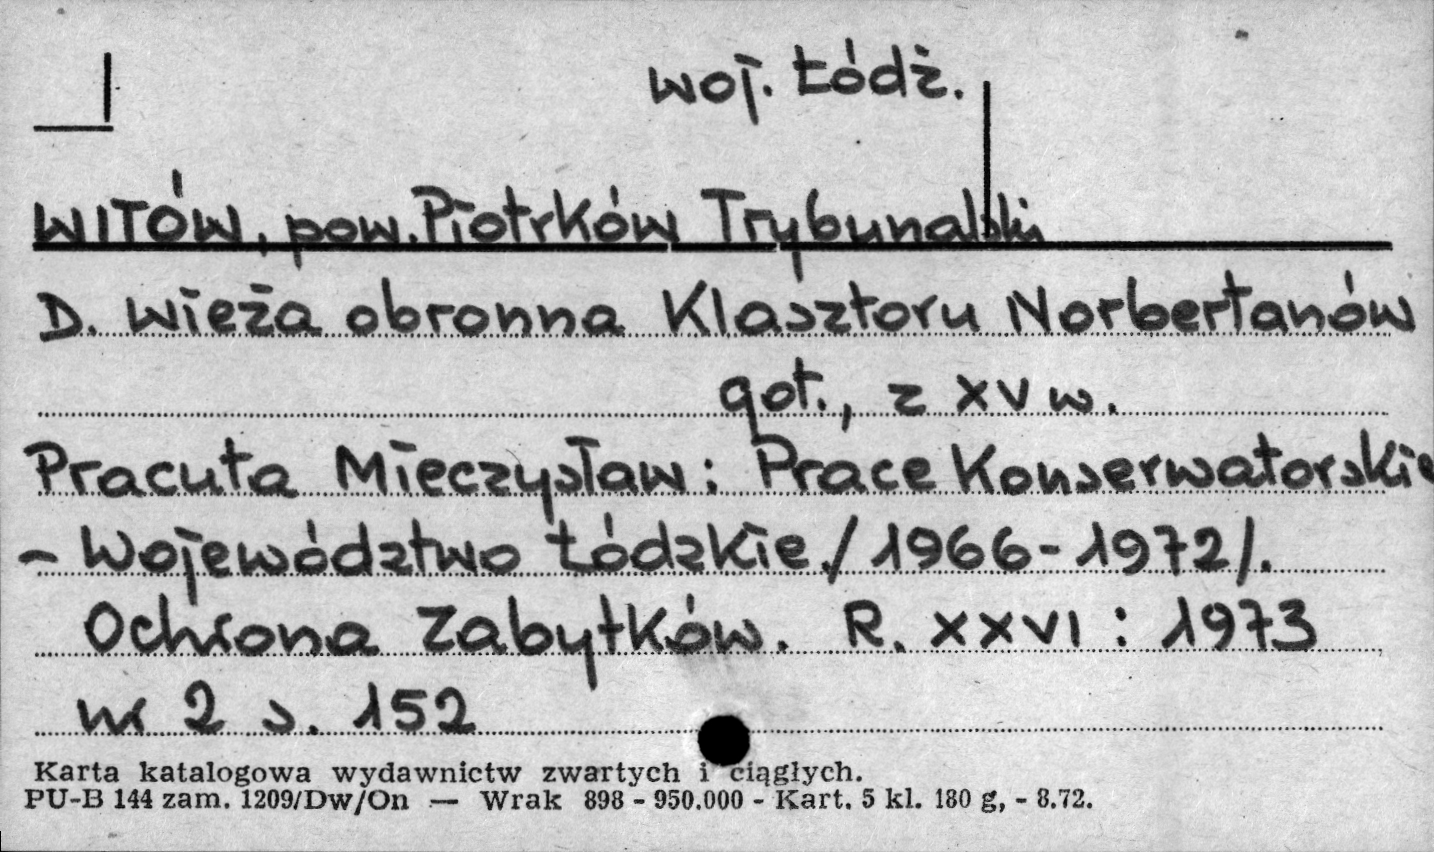 woj. Łódź.
WITÓW, pow. Piotrków Trybunalski
D. Wieża obronna Klasztoru Norbertanów
got., z XV w.
Pracuta Mieczysław: Prace Konserwatorskie
- Województwo Łódzkie /1966-1972/.
Ochrona Zabytków. R. XXVI: 1973
nr 2 s. 152
Karta katalogowa wydawnictw zwartych i ciągłych.
PU-B 144 zam. 1209/Dw/On — Wrak 898 - 950.000 - Kart. 5 kl. 180 g, - 8.72.